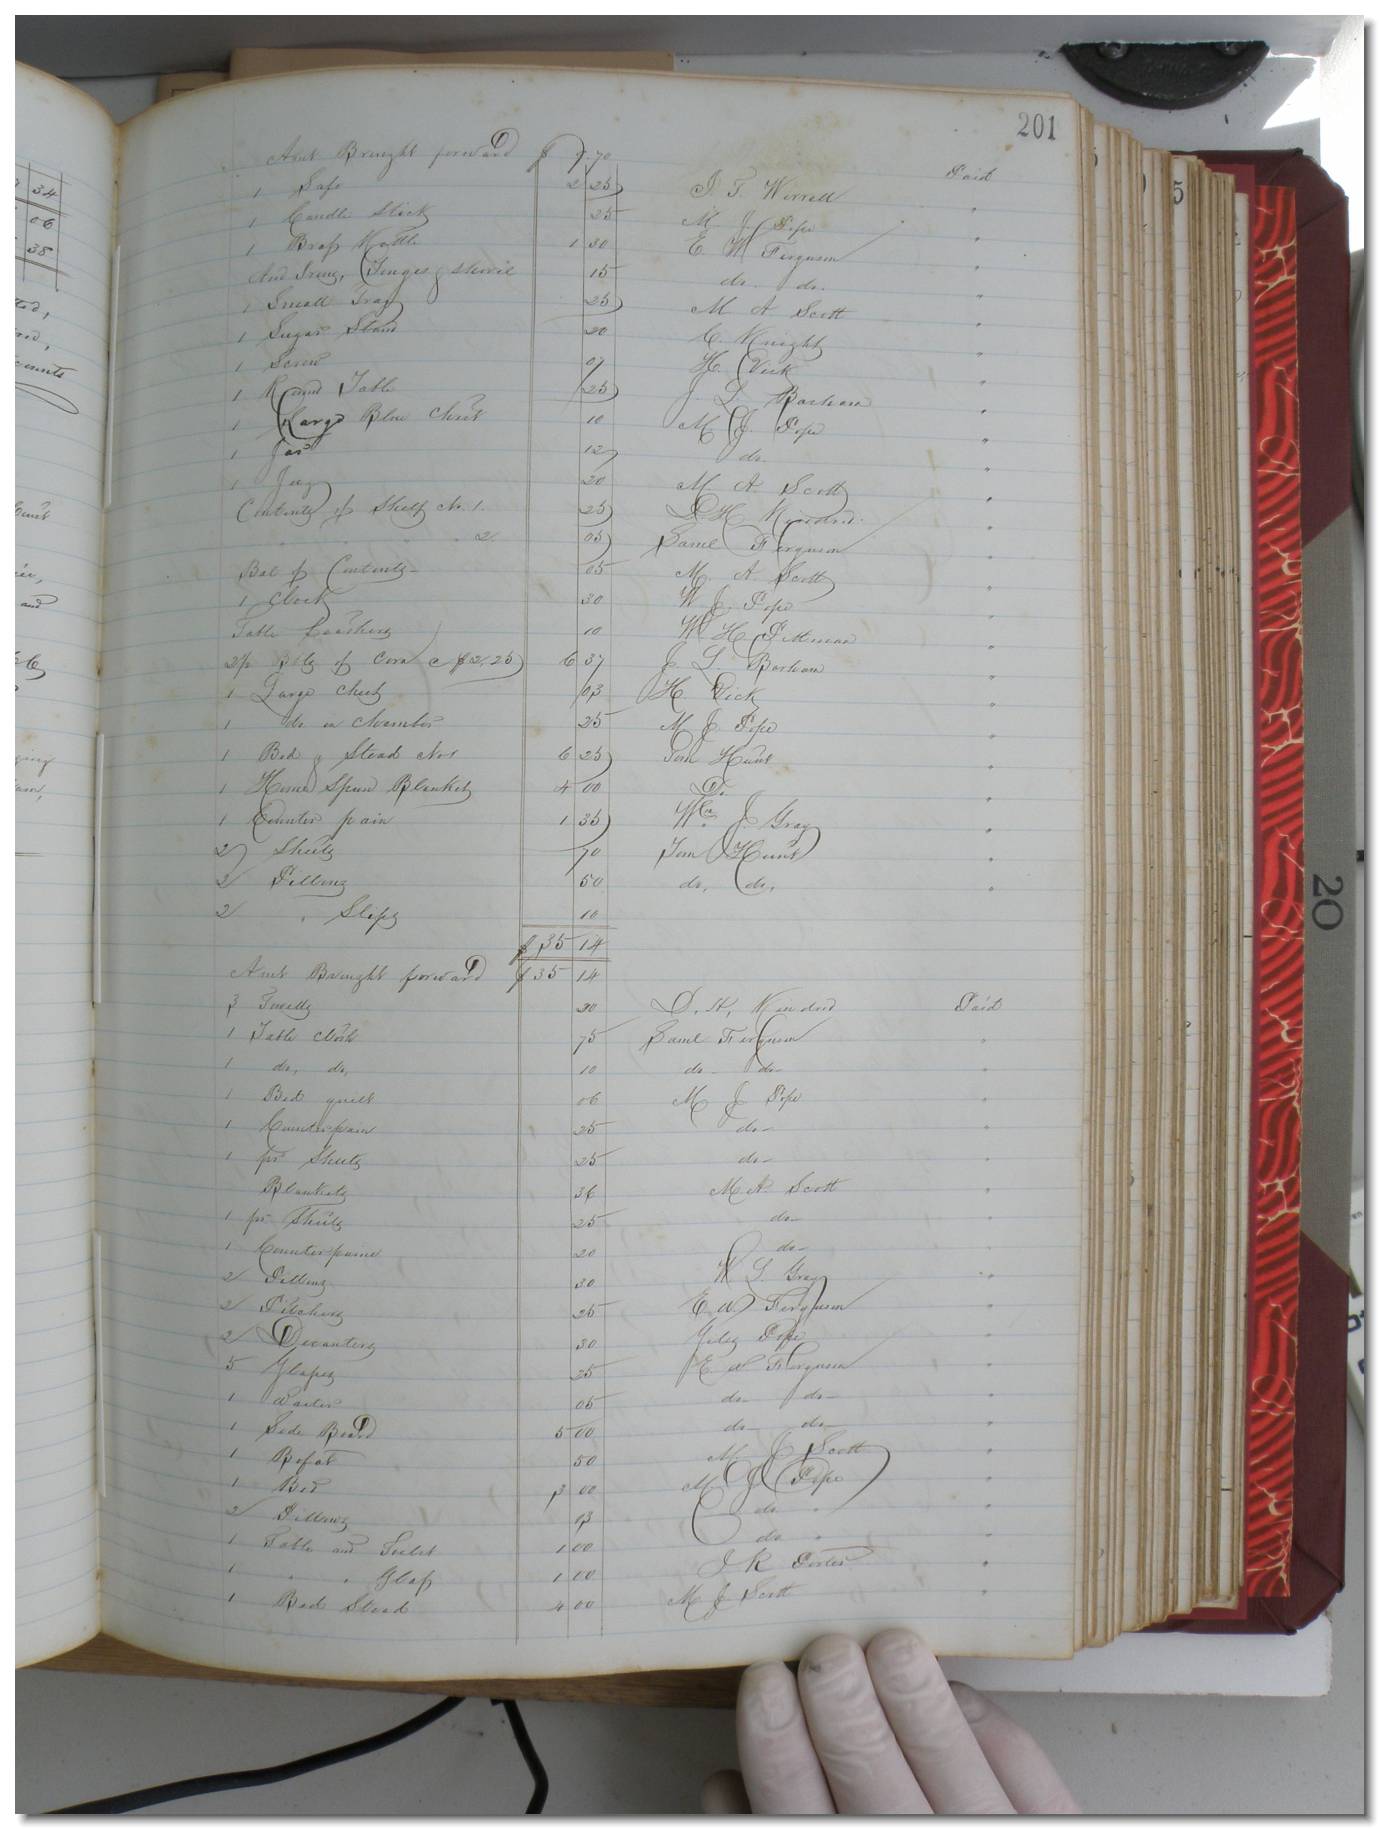 34
06
38
and
201
Amt Brought forward $ 9.70
1 Safe 2 25 J. T. Worrell Paid
1 Candle Stick 25 M. J. Pope "
1 Brass Kettle 1 30 E. W Ferguson "
And Irons, Tonges & shovil 15 do. do. "
1 Small Tray 25 M A Scott "
1 Sugar Stand 20 C. Knight "
1 Screw 07 H. Vick "
1 Round Table 25 J L Barham "
1 Large Blue Chest 10 M J. Pope "
1 Jar 12 do. "
1 Jug 20 M A Scott "
Contents of Shelf No. 1. 25 D. H Kindred "
" " " " 2. 05 Saml Ferguson "
Bal of Contents 05 M. A Scott "
1 Clock 30 W J. Pope "
Table 10 W H Pittman "
Blls of Corn @ $2.25 6 37 J. L. Barham "
1 Large Chest 03 H Vick "
1 do in Chamber 25 M J. Pope "
1 Bed & Stead No 1 6 25 Tom Hunt "
1 Home Spun Blanket 4 00 Do. "
1 Counter pain 1 35 Wm J. Gray "
2 Sheets 70 Tom Hunt "
2 Pillows 50 do. do. "
2 " Slips 10
$ 35 14
Amt Brought forward $ 35 14
3 Towells 20 D. H. Kindred Paid
1 Table Cloth 75 Saml Ferguson "
1 do. do. 10 do- do- "
1 Bed quilt 06 M J Pope "
1 Counterpain 25 do- "
1 pr Sheets 25 do- "
Blankets 36 M A. Scott "
1 pr Sheets 25 do- "
1 Counterpaine 20 do- "
2 Pillows 30 W L. Gray "
2 Pitchers 25 E W Ferguson "
2 Decanters 30 Jiles Pope "
5 Glasses 25 E W Ferguson "
1 Waiter 05 do- do- "
1 Side Board 5 00 do- do- "
1 Bofat 50 M J Scott "
1 Bed 3 00 M J Pope "
2 Pillows 03 do " "
1 Table and Toilet 1 00 do " "
1 " " Glass 1 00 J K Porter "
1 Bed Stead 4 00 M J Scott "
20